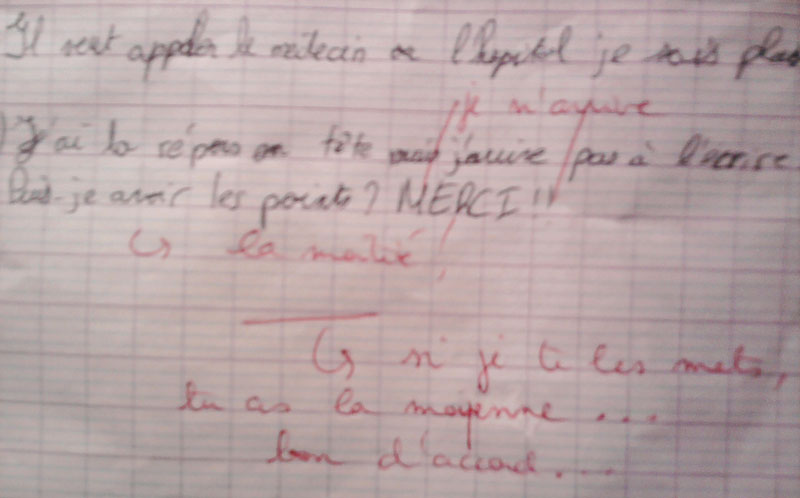 Il veut appeler le médecin de l'hopital je sais plus
je n'arrive
J'ai la répons en tête mais j'arrive pas à l'écrire
Puis-je avoir les points? MERCI!!
↳ la moitié!
↳ si je te les mets,
tu as la moyenne ...
bon d'accord....